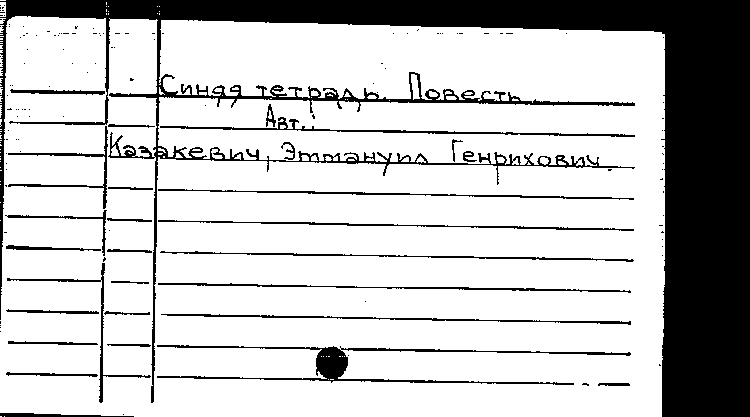 Синяя тетрадь. Повесть.
Авт.:
Казакевич, Эммануил Генрихович.